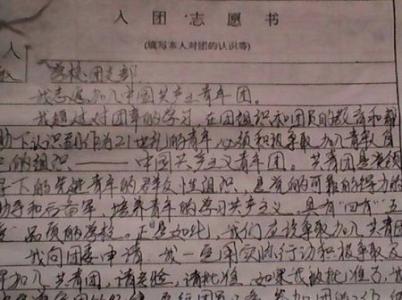 入团志愿书
(填写本人对团的认识等)
入
学校团支部
我志愿加入中国共产主义青年团。
我通过对团章的学习,在团组织和团员的教育和帮
助下认识到作为21世纪的青年必须积极争取加入青年自
的组织——中国共产主义青年团。共青团是党领
导下的先进青年的群众性组织,是党的可靠的得力的
助手和后备军,培养青年的学习共产主义,具有"四有"五
品质的学校。正是如此,我们应该争取加入共青团
我向团委申请:我一定用实际行动积极争取及
早加入共青团,请考验,请批准。如果我被批准了,我